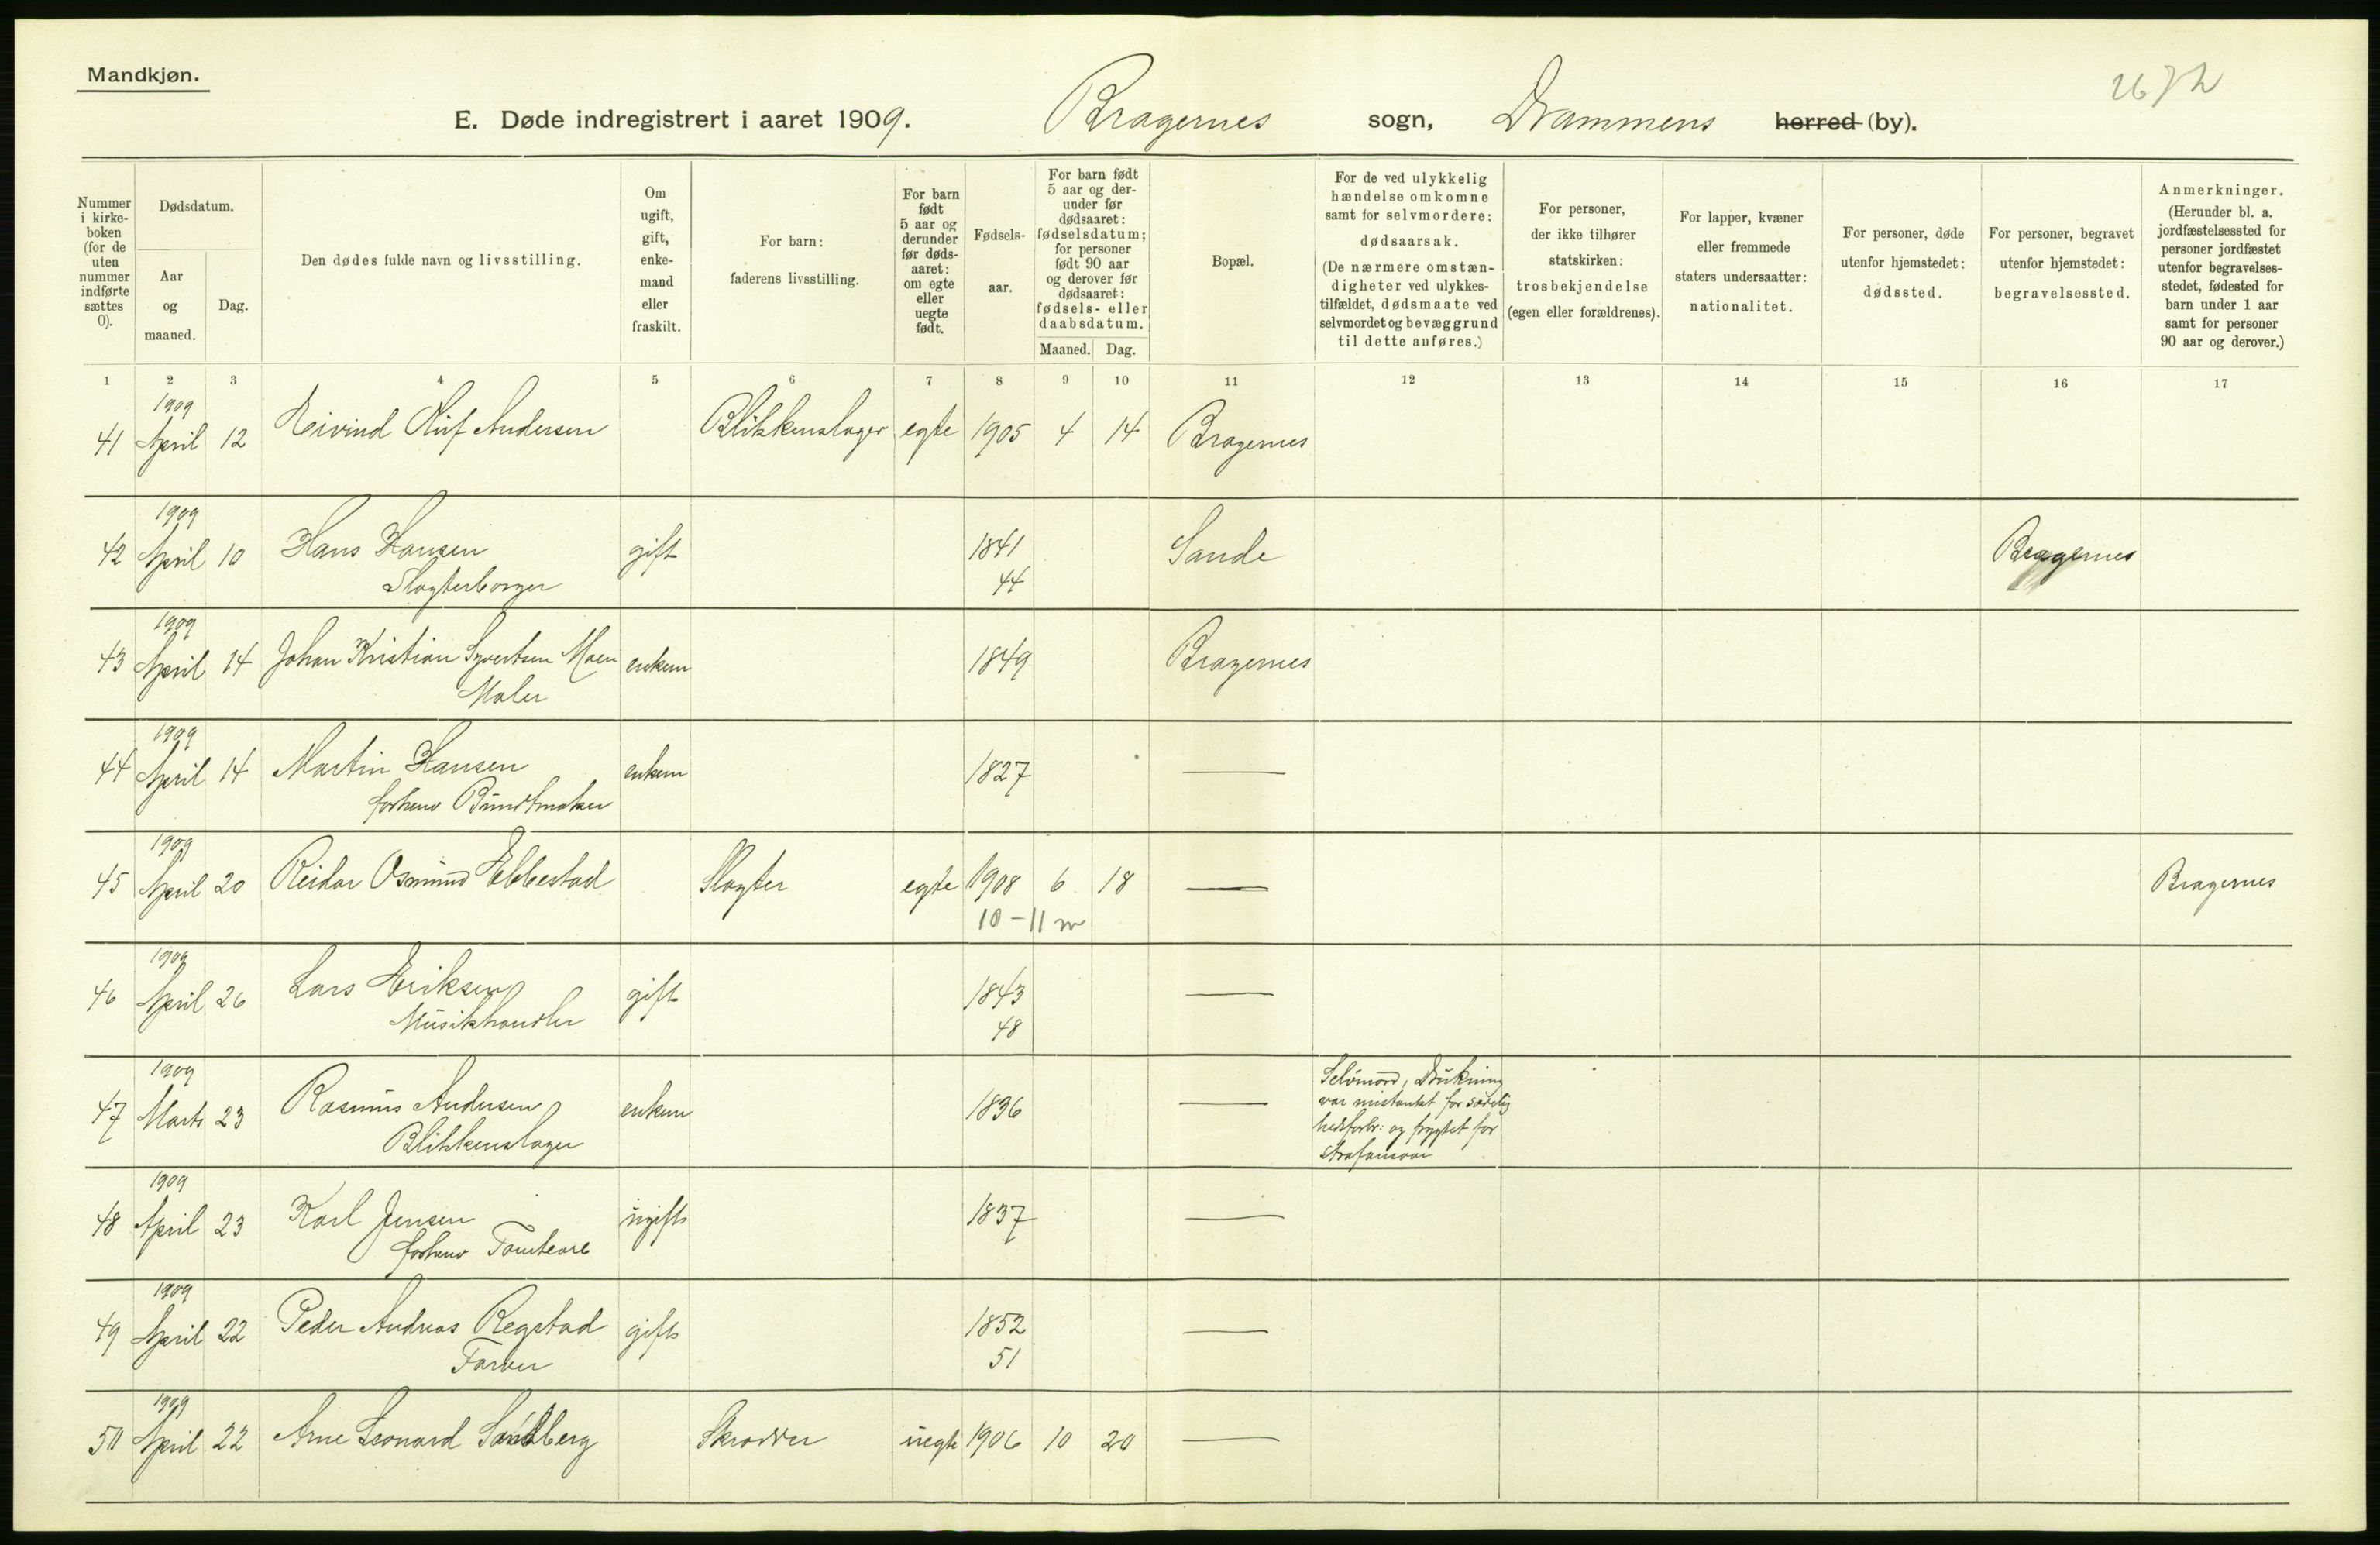 Mandkjøn.
2672
E. Døde indregistrert i aaret 1909. Bragernes sogn, Drammens herred (by).
Nummer i kirkeboken (for de uten nummer indførte sættes 0).
Dødsdatum.
Aar og maaned.
Dag.
Den dødes fulde navn og livsstilling.
Om ugift, gift, enkemand eller fraskilt.
For barn: faderens livsstilling.
For barn født 5 aar og derunder før dødsaaret: om egte eller uegte født.
Fødselsaar.
For barn født 5 aar og derunder før dødsaaret: fødselsdatum; for personer født 90 aar og derover før dødsaaret: fødsels- eller daabsdatum.
Maaned. Dag.
Bopæl.
For de ved ulykkelig hændelse omkomne samt for selvmordere: dødsaarsak. (De nærmere omstændigheter ved ulykkestilfældet, dødsmaate ved selvmordet og bevæggrund til dette anføres.)
For personer, der ikke tilhører statskirken: trosbekjendelse (egen eller forældrenes).
For lapper, kvæner eller fremmede staters undersaatter: nationalitet.
For personer, døde utenfor hjemstedet: dødssted.
For personer, begravet utenfor hjemstedet: begravelsessted.
Anmerkninger. (Herunder bl. a. jordfæstelsessted for personer jordfæstet utenfor begravelsesstedet, fødested for barn under 1 aar samt for personer 90 aar og derover.)
1 2 3 4 5 6 7 8 9 10 11 12 13 14 15 16 17
1909
41 April 12 Eivind Oluf Andersen Blikkenslager egte 1905 4 14 Bragernes
1909
42 April 10 Hans Hansen gift 1841 Sande Bragernes
Slagterborger 44
1909
43 April 14 Johan Kristian Syvertsen Moen enkem 1849 Bragernes
Maler
1909
44 April 14 Martin Hansen enkem 1827 —
forhenv Bundtmaker
1909
45 April 20 Reidar Osmund Ebbestad Slagter egte 1908 6 18 — Bragernes
10-11 m
1909
46 April 26 Lars Eriksen gift 1843 —
Musikhandler 48
1909
47 Marts 23 Rasmus Andersen enkem 1836 — Selvmord, Drukning
Blikkenslager var mistænkt for sædelig
hedsforbr: og frygtet for
strafansvar
1909
48 April 23 Karl Jensen ugift 1837 —
forhenv
1909
49 April 22 Peder Andreas Regstad gift 1852 —
Farver 51
1909
50 April 22 Arne Leonard Sandberg Skrædder uegte 1906 10 20 —